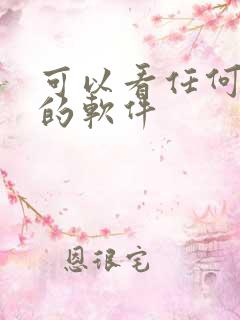 可以看任何
的軟件
恩很宅